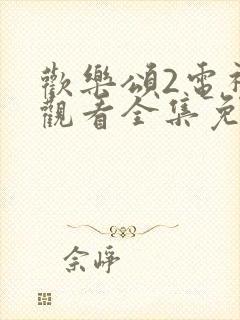 歡樂頌2電視
觀看全集免
佘崢